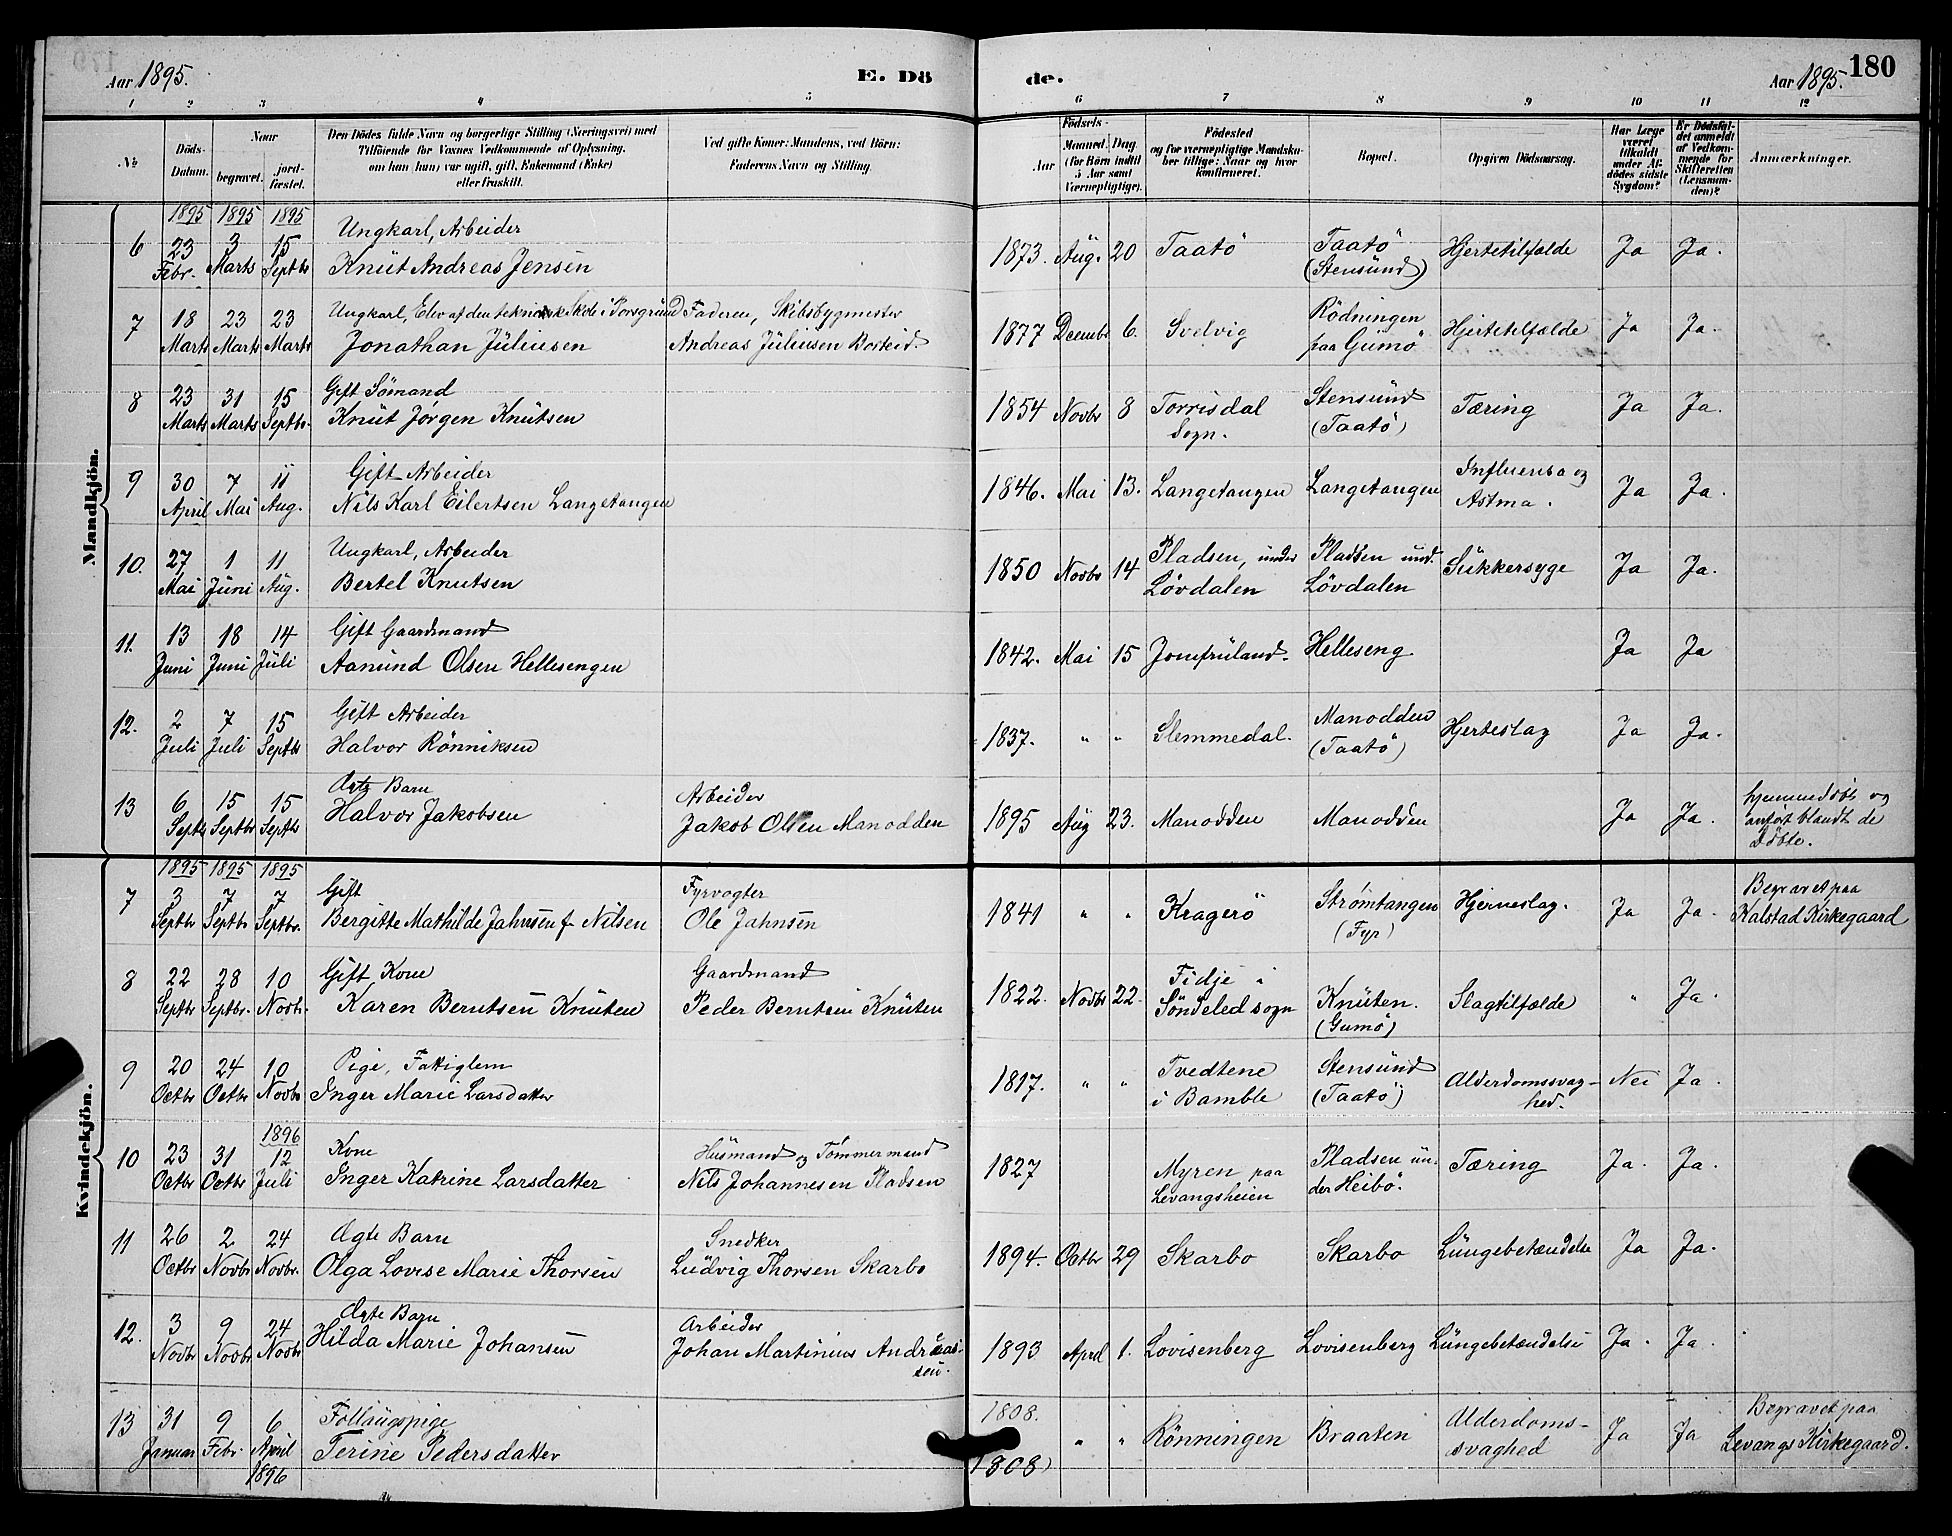 Aar 1895.
E. Dö
de.
Aar 1895.
180
1 2 3 4 5 6 7 8 9 10 11 12
№
Döds-Datum.
Naar
begravet.
jord-fæstet.
Den Dödes fulde Navn og borgerlige Stilling (Næringsvei) med
Tilföiende for Voxnes Vedkommende af Oplysning,
om han (hun) var ugift, gift, Enkemand (Enke)
eller fraskilt.
Ved gifte Koner: Mandens, ved Börn:
Faderens Navn og Stilling.
Födsels-
Aar
Maaned. Dag
(for Börn indtil
5 Aar samt
Værnepligtige).
Födested
og for værnepligtige Mandska-
ber tillige: Naar og hvor
konfirmeret.
Bopæl.
Opgiven Dödsaarsag.
Har Læge
været
tilkaldt
under Af-
dödes sidste
Sygdom?
Er Dödsfal-
det anmeldt
af Vedkom-
mende for
Skifteretten
(Lensman-
den)?
Anmærkninger.
Mandkjön.
1895 1895 1895
6 23 Febr. 3 Marts 15 Septbr
Ungkarl, Arbeider
Knut Andreas Jensen
1873. Aug. 20 Taatö
Taatö
(Stensund)
Hjertetilfælde Ja Ja.
7 18 Marts 23 Marts 23 Marts
Ungkarl, Elev af den teknisk Skole i Porsgrund
Jonathan Juliusen
Faderen, Skibsbygmester
Andreas Juliusen
1877 Decembr 6. Svelvig
Rödningen
paa Gumö
Hjertetilfælde Ja Ja.
8 23 Marts 31 Marts 15 Septbr.
Gift Sömand
Knut Jørgen Knutsen
1854 Novbr 8 Torrisdal
Sogn.
Stensund
(Taatö)
Tæring Ja Ja.
9 30 April 7 Mai 11 Aug.
Gift Arbeider
Nils Karl Eilertsen Langetangen
1846. Mai 13. Langetangen Langetangen
Influensa og
Astma.
Ja Ja.
10. 27 Mai 1 Juni 11 Aug.
Ungkarl, Arbeider
Bertel Knutsen
1850 Novbr 14
Pladsen, under
Lövdalen
Pladsen und.
Lövdalen
Sukkersyge Ja Ja.
11. 13 Juni 18 Juni 14 Juli
Gift Gaardmand
Aamund Olsen Hellesengen
1842. Mai 15 Jomfruland. Helleseng. Ja Ja
12. 2 Juli 7 Juli 15 Septbr
Gift Arbeider
Halvor Rönniksen
1837. " " Slemmedal.
Manodden
(Taatö)
Hjerteslag Ja Ja.
13 6 Septbr 15 Septbr 15 Septbr
Ægte Barn
Halvor Jakobsen
Arbeider
Jakob Olsen Manodden
1895 Aug 23. Manodden Manodden Ja Ja.
hjemmedöbt og
anfört blandt de
Döbte.
Kvindekjön.
1895 1895 1895
7 3 Septbr 7 Septbr 7 Septbr.
Gift
Bergitte Mathilde Jahnsen f. Nilsen
Fyrvogter
Ole Jahnsen
1841 " " Kragerö
Strømtangen
(Fyr)
Hjerneslag. Ja Ja.
Begravet paa
Kalstad Kirkegaard
8 22 Septbr 28 Septbr. 10 Novbr.
Gift Kone
Karen Berntsen Knuten
Gaardmand
Peder Berntsen Knuten
1822. Novbr 22.
Fidje i
Söndeled sogn
Knuten.
(Gumö)
Slagtilfælde " Ja.
9 20 Octbr 24 Octbr 10 Novbr
Pige, Fattiglem
Inger Marie Larsdatter
1817. " "
Tvedtene
i Bamble
Stensund
(Taatö)
Alderdomssvag-
hed.
Nei Ja.
10 23 Octbr 31 Octbr 1896 12 Juli
Kone
Inger Katrine Larsdatter
Husmand og Tømmermand
Nils Johannesen Pladsen
1827
Myren paa
Levangsheien
Pladsen un-
der Heibö.
Tæring Ja. Ja.
11 26 Octbr 2 Novbr 24 Novbr.
Ægte Barn
Olga Lovise Marie Thorsen
Snedker
Ludvig Thorsen Skarbo
1894. Octbr 29 Skarbo Skarbo Lungebetændelse Ja Ja.
12. 3 Novbr 9 Novbr 24 Novbr
Ægte Barn
Hilda Marie Johansen
Arbeider
Johan Martinius Andreas-
sen.
1893 April 1. Lovisenberg Lovisenberg Lungebetændelse Ja. Ja.
13 31 Januar 9 Febr. 6 April 1896
Follaugspige
Terine Pedersdatter
1808.
1808) " " Rönningen Braaten
Alderdoms-
svaghed
Ja Ja
Begravet paa
Levangs Kirkegaard.